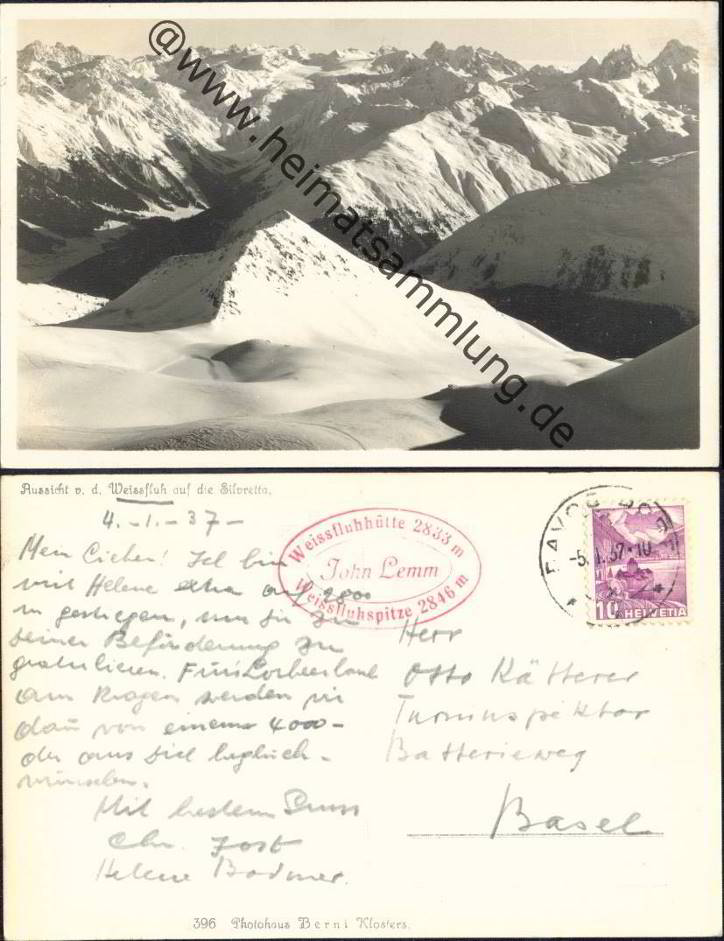 @www.heimatsammlung.de
Aussicht v. d. Weissfluh auf die Silvretta.
4.-1.-37-
Mein Lieber! Ich bin
mit Helene extra auf 2800
m gestiegen, um dir zu
deiner Beförderung zu
gratulieren. Für's Lorbeerlaub
am Kragen werden wir
dann von einem 4000-
der aus dich beglück-
wünschen.
Mit bestem Gruss
Chr. Jost
Helene Bodmer.
Weissfluhhütte 2833 m
John Lemm
Weissfluhspitze 2846 m
DAVOS
-5.I.37-10
10 HELVETIA
Herr
Otto Kätterer
Turninspektor
Batterieweg
Basel
396 Photohaus Berni Klosters.